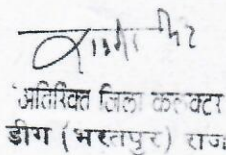 अतिरिक्त जिला कलक्टर
डीग (भरतपुर) राज